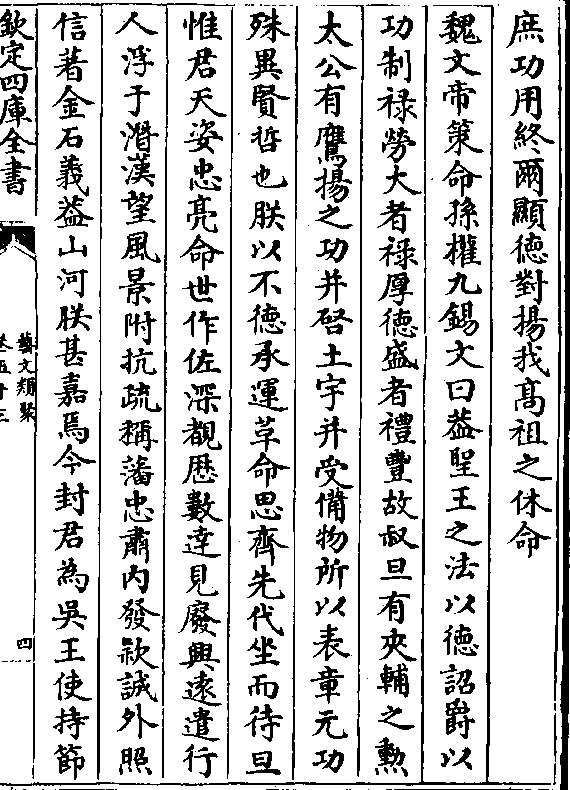 庶功用終爾顯徳對揚我髙祖之休命
魏文帝䇿命孫權九錫文曰葢聖王之法以徳詔爵以
功制禄勞大者禄厚徳盛者禮豐故叔旦有夾輔之勲
太公有鷹揚之功并啓土宇并受備物所以表章元功
殊異賢哲也朕以不徳承運革命思齊先代坐而待旦
惟君天姿忠亮命世作佐深覩厯數逹見廢興遠遣行
人浮于潛漢望風景附抗疏稱藩忠肅内發欵誠外照
信著金石義葢山河朕甚嘉焉今封君為吳王使持節
欽定四庫全書
藝文類聚
卷五十三
四